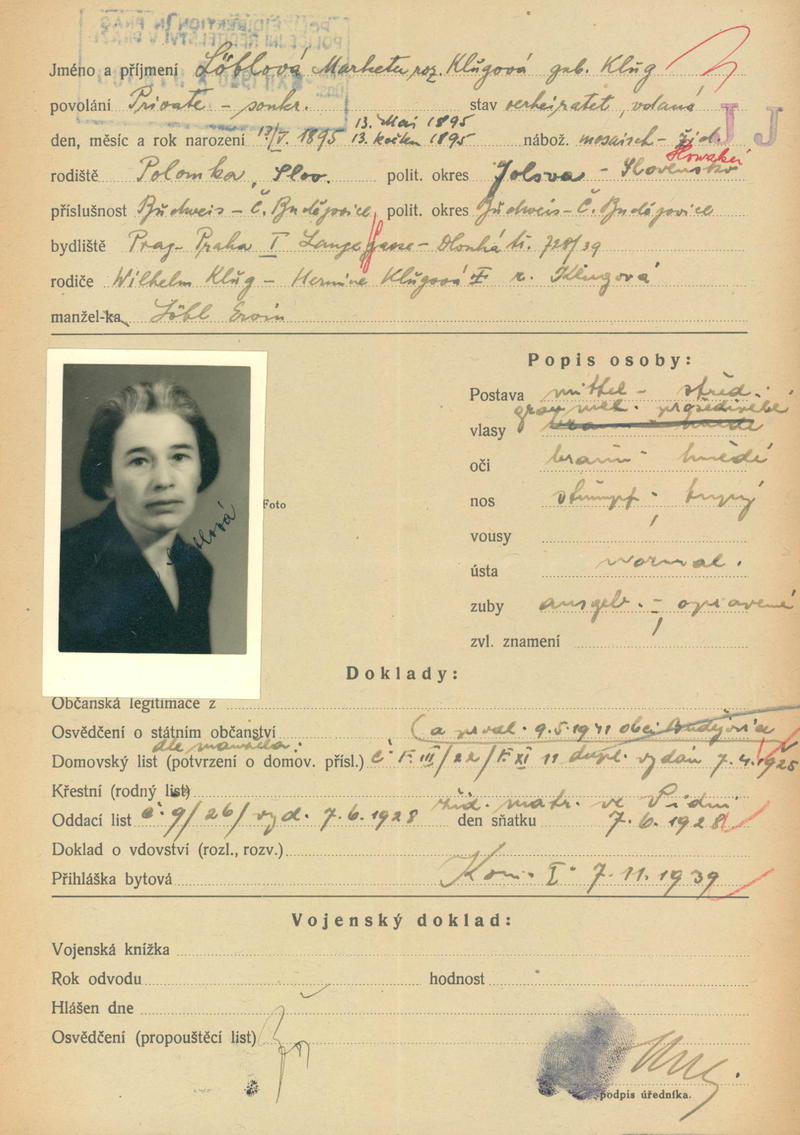 Jméno a příjmení Löblová Marketa roz. Klugová geb. Klug
povolání Private - soukr. stav verheiratet, vdaná
13. Mai 1895
den, měsíc a rok narození 13/V. 1895 13. květen 1895 nábož. mosaisch - žid.
J J
rodiště Polomka, Slov. polit. okres Jolsva - Slovensko
příslušnost Budweis - Č. Budějovice polit. okres Budweis - Č. Budějovice
bydliště Prag - Praha I Lange Gasse - Dlouhá tř. 728/39
rodiče Wilhelm Klug - Hermine Klugová r. Klugová
manžel-ka Löbl Ervin
Popis osoby:
Postava mittel - střed.
grau mel. prošedivělé
vlasy
oči braun - hnědé
nos stumpf - tupý
vousy
ústa normal.
zuby ausgeb. - opravené
zvl. znamení
Foto
Löblová
Doklady:
Občanská legitimace z
Osvědčení o státním občanství 9.5.1941 obcí Budějovice
dle
Domovský list (potvrzení o domov. přísl.) č. F. III/22/F. XI 11 dupl. vydán 7.4.1925
Křestní (rodný list)
žid. matr. ve Vídni
Oddací list č. 9/26/ vyd. 7.6.1928 den sňatku 7.6.1928
Doklad o vdovství (rozl., rozv.)
Přihláška bytová Kom. I. 7.11.1939
Vojenský doklad:
Vojenská knížka
Rok odvodu hodnost
Hlášen dne
Osvědčení (propouštěcí list)
podpis úředníka.